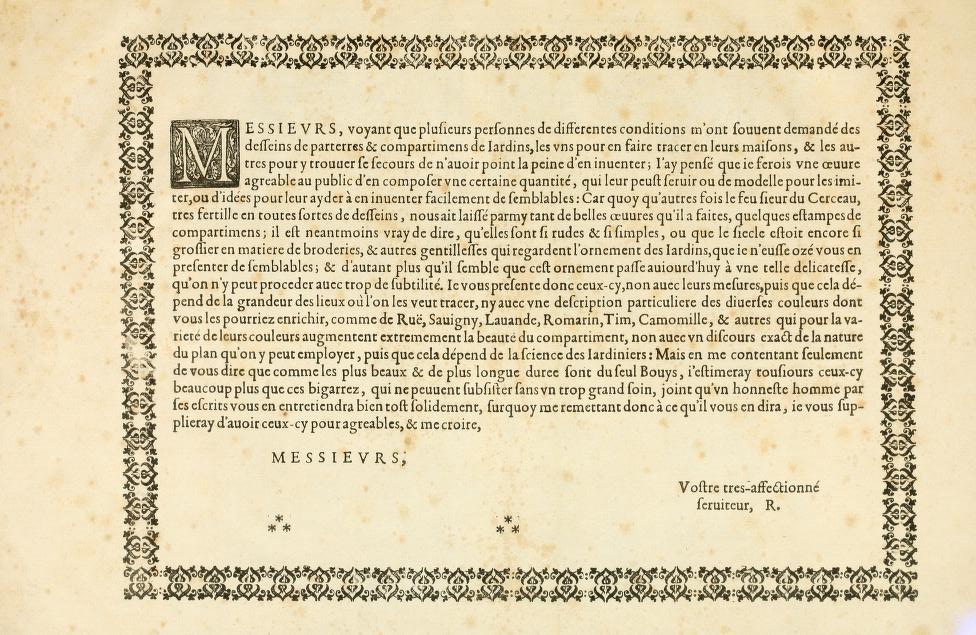 MESSIEVRS, voyant que pluſieurs perſonnes de differentes conditions m'ont ſouuent demandé des
deſſeins de parterres & compartimens de Iardins, les vns pour en faire tracer en leurs maiſons, & les au-
tres pour y trouuer le ſecours de n'auoir point la peine d'en inuenter; I'ay penſé que ie ferois vne œuure
agreable au public d'en compoſer vne certaine quantité, qui leur peuſt ſeruir ou de modelle pour les imi-
ter, ou d'idées pour leur ayder à en inuenter facilement de ſemblables: Car quoy qu'autres fois le feu ſieur du Cerceau,
tres fertille en toutes ſortes de deſſeins, nous ait laiſſé parmy tant de belles œuures qu'il a faites, quelques eſtampes de
compartimens; il eſt neantmoins vray de dire, qu'elles ſont ſi rudes & ſi ſimples, ou que le ſiecle eſtoit encore ſi
groſſier en matiere de broderies, & autres gentilleſſes qui regardent l'ornement des Iardins, que ie n'euſſe ozé vous en
preſenter de ſemblables; & d'autant plus qu'il ſemble que ceſt ornement paſſe auiourd'huy à vne telle delicateſſe,
qu'on n'y peut proceder auec trop de ſubtilité. Ie vous preſente donc ceux-cy, non auec leurs meſures, puis que cela dé-
pend de la grandeur des lieux où l'on les veut tracer, ny auec vne deſcription particuliere des diuerſes couleurs dont
vous les pourriez enrichir, comme de Ruë, Sauigny, Lauande, Romarin, Tim, Camomille, & autres qui pour la va-
rieté de leurs couleurs augmentent extremement la beauté du compartiment, non auec vn diſcours exact de la nature
du plan qu'on y peut employer, puis que cela dépend de la ſcience des Iardiniers: Mais en me contentant ſeulement
de vous dire que comme les plus beaux & de plus longue duree ſont du ſeul Bouys, i'eſtimeray touſiours ceux-cy
beaucoup plus que ces bigarrez, qui ne peuuent ſubſiſter ſans vn trop grand ſoin, joint qu'vn honneſte homme par
ſes eſcrits vous en entretiendra bien toſt ſolidement, ſurquoy me remettant donc à ce qu'il vous en dira, ie vous ſup-
plieray d'auoir ceux-cy pour agreables, & me croire,
MESSIEVRS,
Voſtre tres-affectionné
ſeruiteur, R.